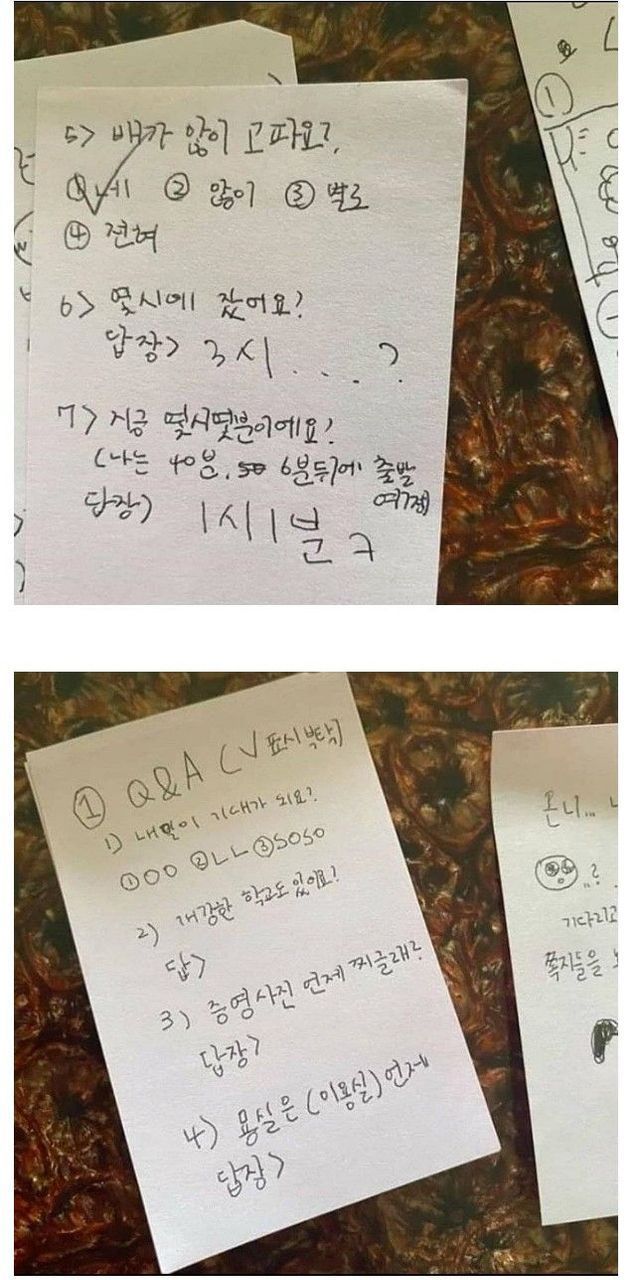 5> 배가 많이 고파요?
①네 ② 많이 ③ 별로
④ 전혀
6> 몇시에 잤어요?
답장> 3시....?
7> 지금 몇시몇분이에요?
(나는 40분, 6분뒤에 출발
답장> 1시1분ㅋ
① Q&A (V 표시 부탁)
1) 내일이 기대가 되요?
①OO ②ㄴㄴ ③SOSO
2) 개강한 학교도 있어요?
답>
3) 증명사진 언제 찍을래?
답장>
4) 용실은 (미용실) 언제
답장>
온니...
..?
기다리고
쪽지들을
①